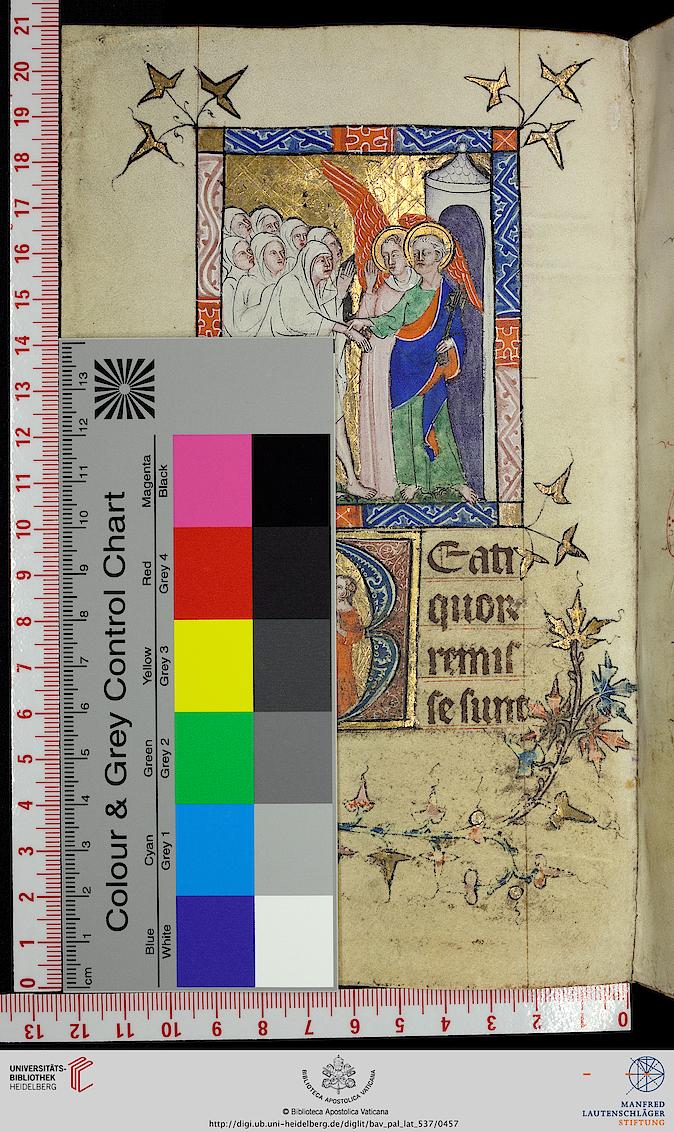 Eati
quorꝫ
remiſ
ſe ſunt
Colour & Grey Control Chart
Magenta
Black
Red
Grey 4
Yellow
Grey 3
Green
Grey 2
Cyan
Grey 1
Blue
White
cm 1 2 3 4 5 6 7 8 9 10 11 12 13
0 1 2 3 4 5 6 7 8 9 10 11 12 13 14 15 16 17 18 19 20 21
13 12 11 10 9 8 7 6 5 4 3 2 1 0
UNIVERSITÄTS-
BIBLIOTHEK
HEIDELBERG
BIBLIOTECA APOSTOLICA VATICANA
© Biblioteca Apostolica Vaticana
http://digi.ub.uni-heidelberg.de/diglit/bav_pal_lat_537/0457
MANFRED
LAUTENSCHLÄGER
STIFTUNG